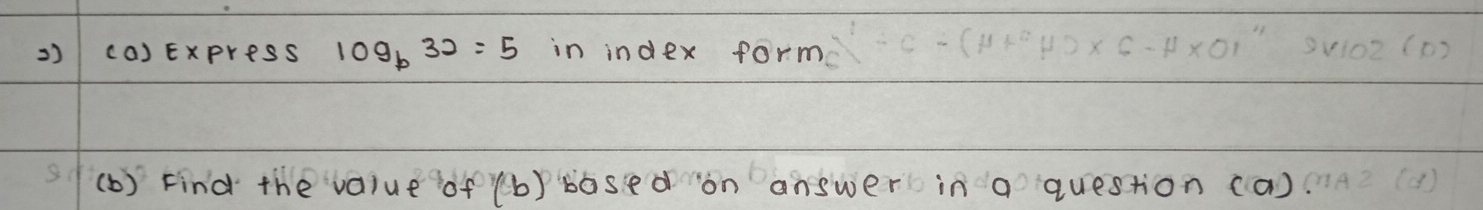 2) (a) Express log_b 32 = 5 in index form.
(b) Find the value of (b) based on answer in a question (a).